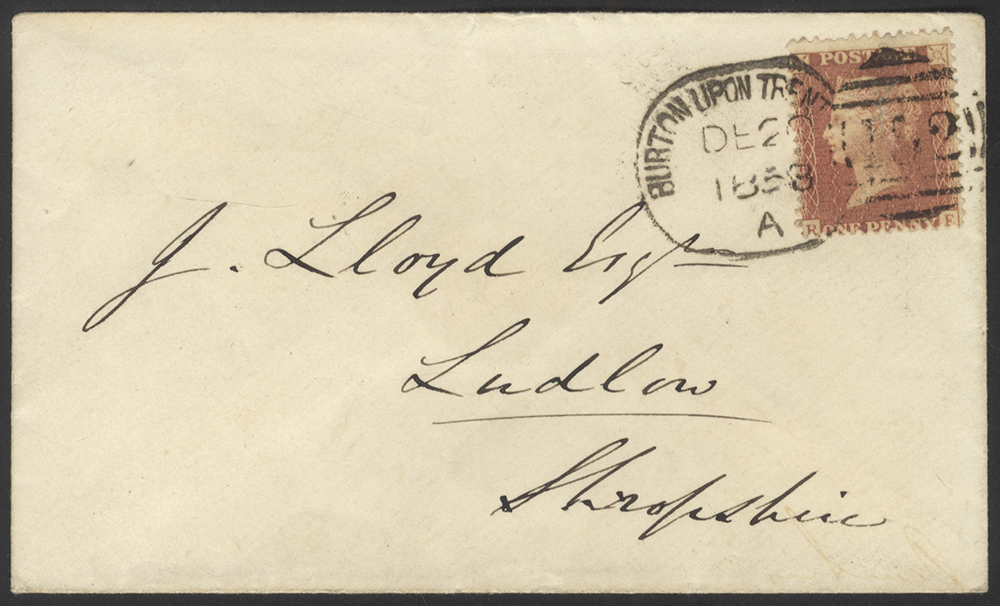 POSTAGE
BURTON UPON TRENT
DE 20
1858
A
R ONE PENNY F
J. Lloyd Esqr
Ludlow
Shropshire